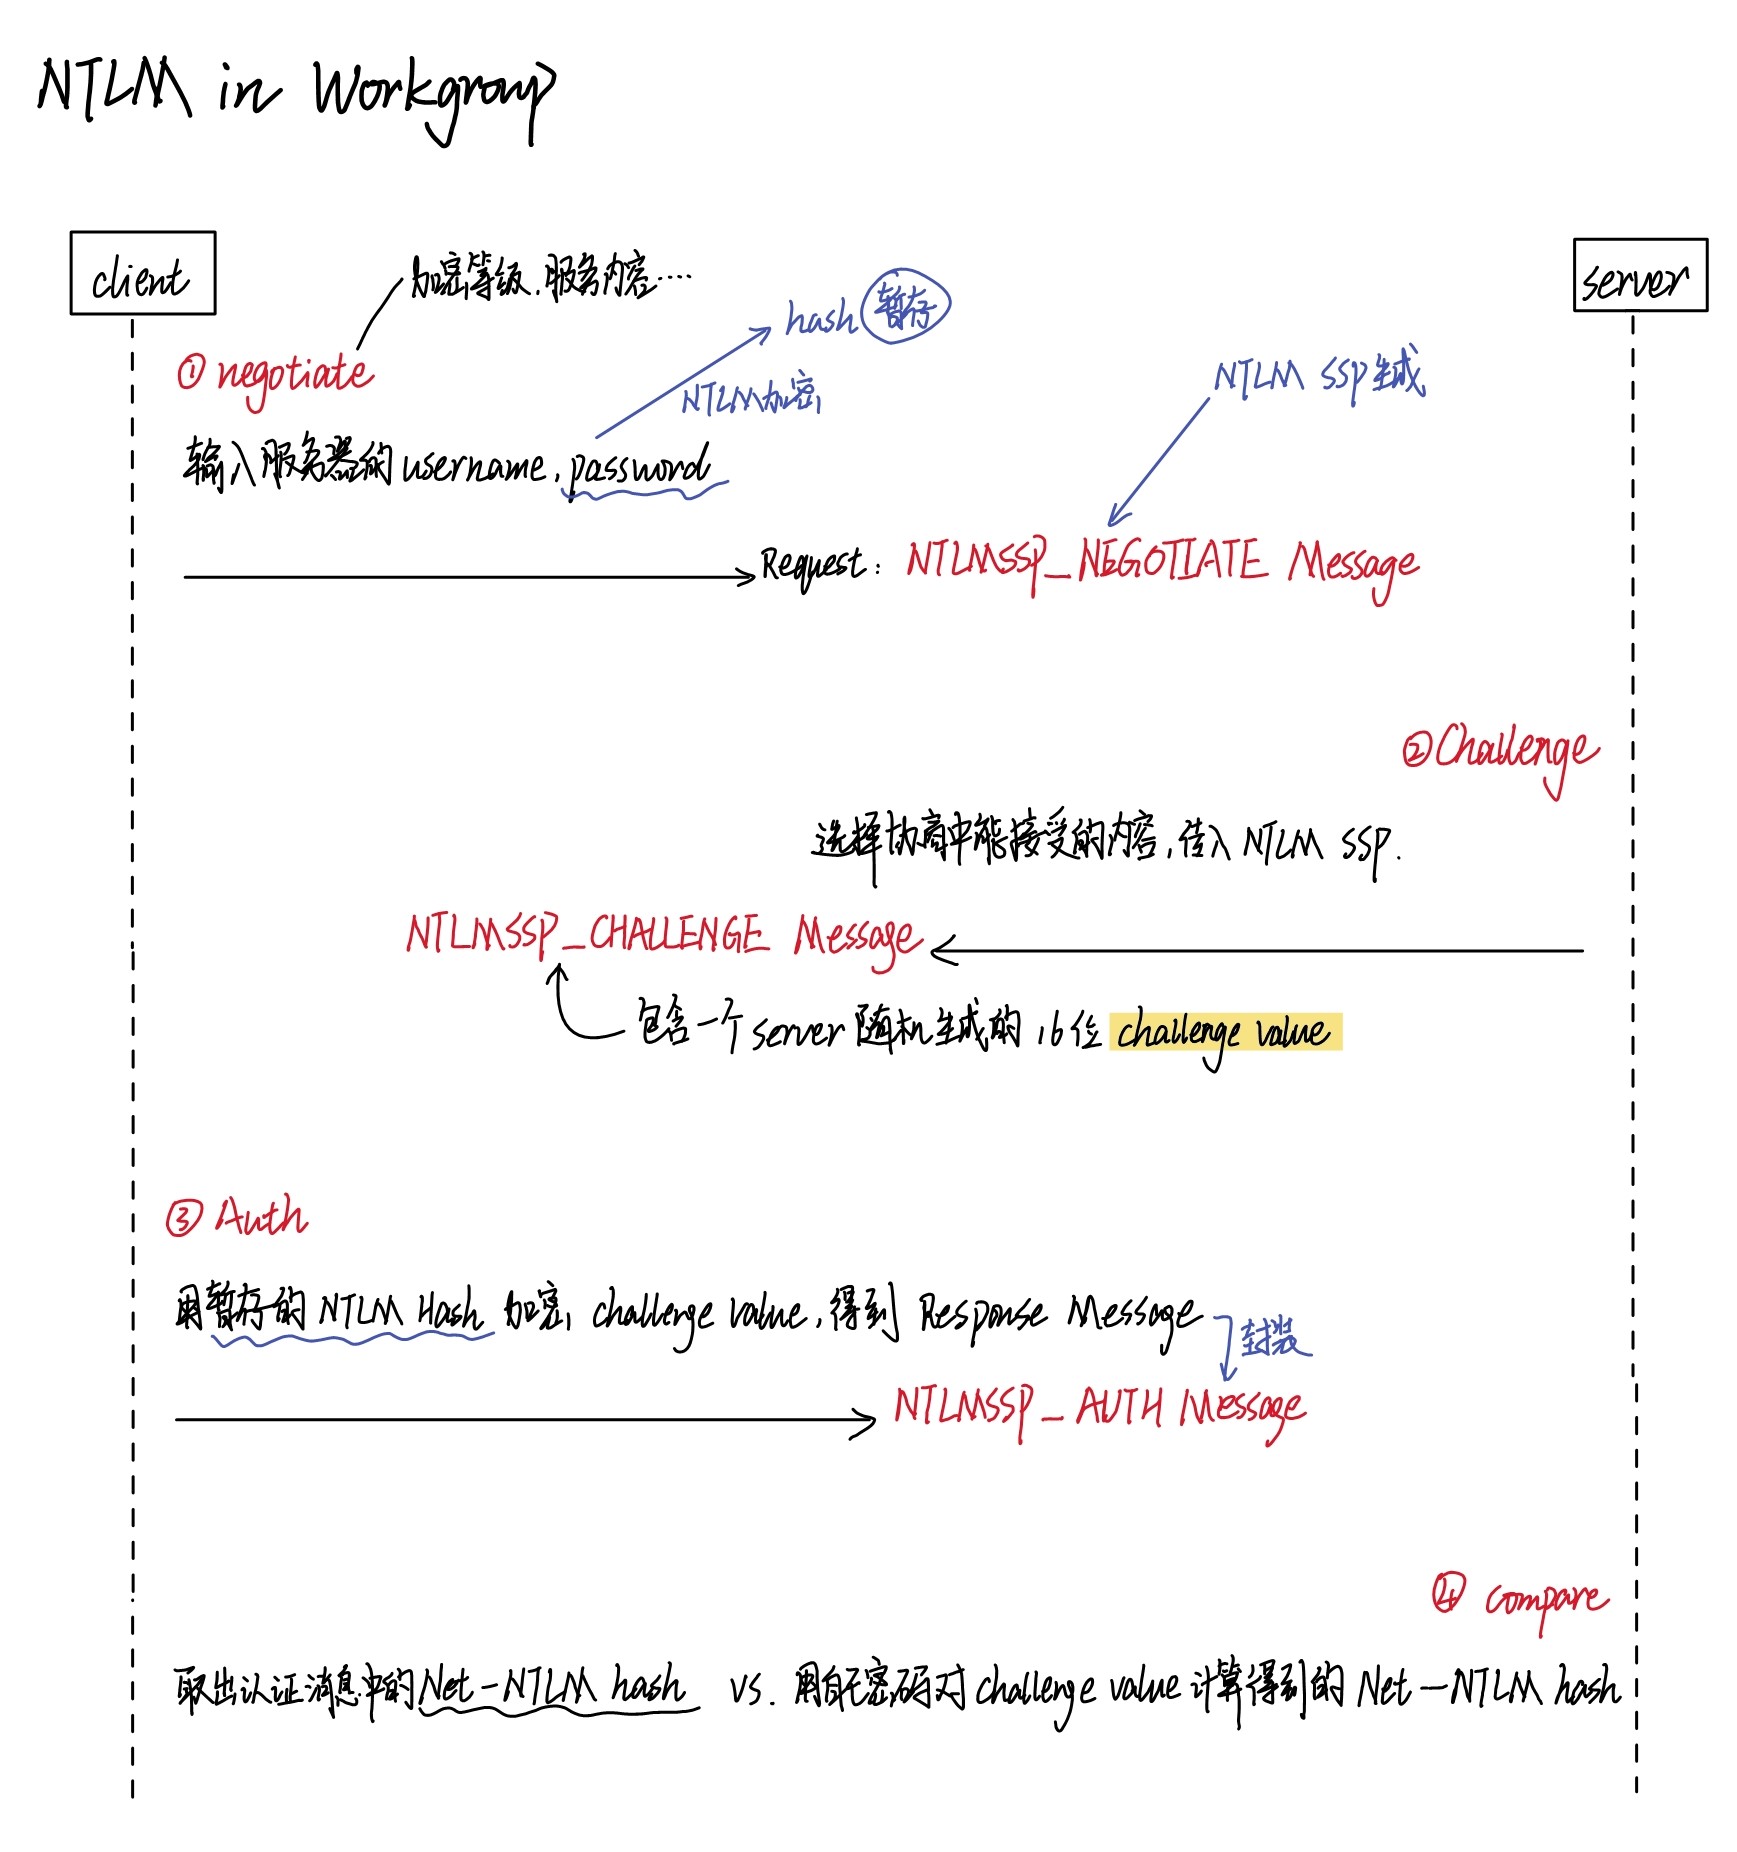 NTLM in Workgroup
client
server
加密等级.服务内容……
hash 暂存
① negotiate
NTLM加密
NTLM SSP生成
输入服务器的username, password
Request: NTLMSSP_NEGOTIATE Message
②Challenge
选择协商中能接受的内容,传入 NTLM SSP.
NTLMSSP_CHALLENGE Message
包含一个server随机生成的16位 challenge value
③ Auth
用暂存的 NTLM Hash 加密 challenge value,得到 Response Message
封装
NTLMSSP_AUTH Message
④ compare
取出认证消息中的Net-NTLM hash vs. 用自己密码对challenge value计算得到的 Net-NTLM hash